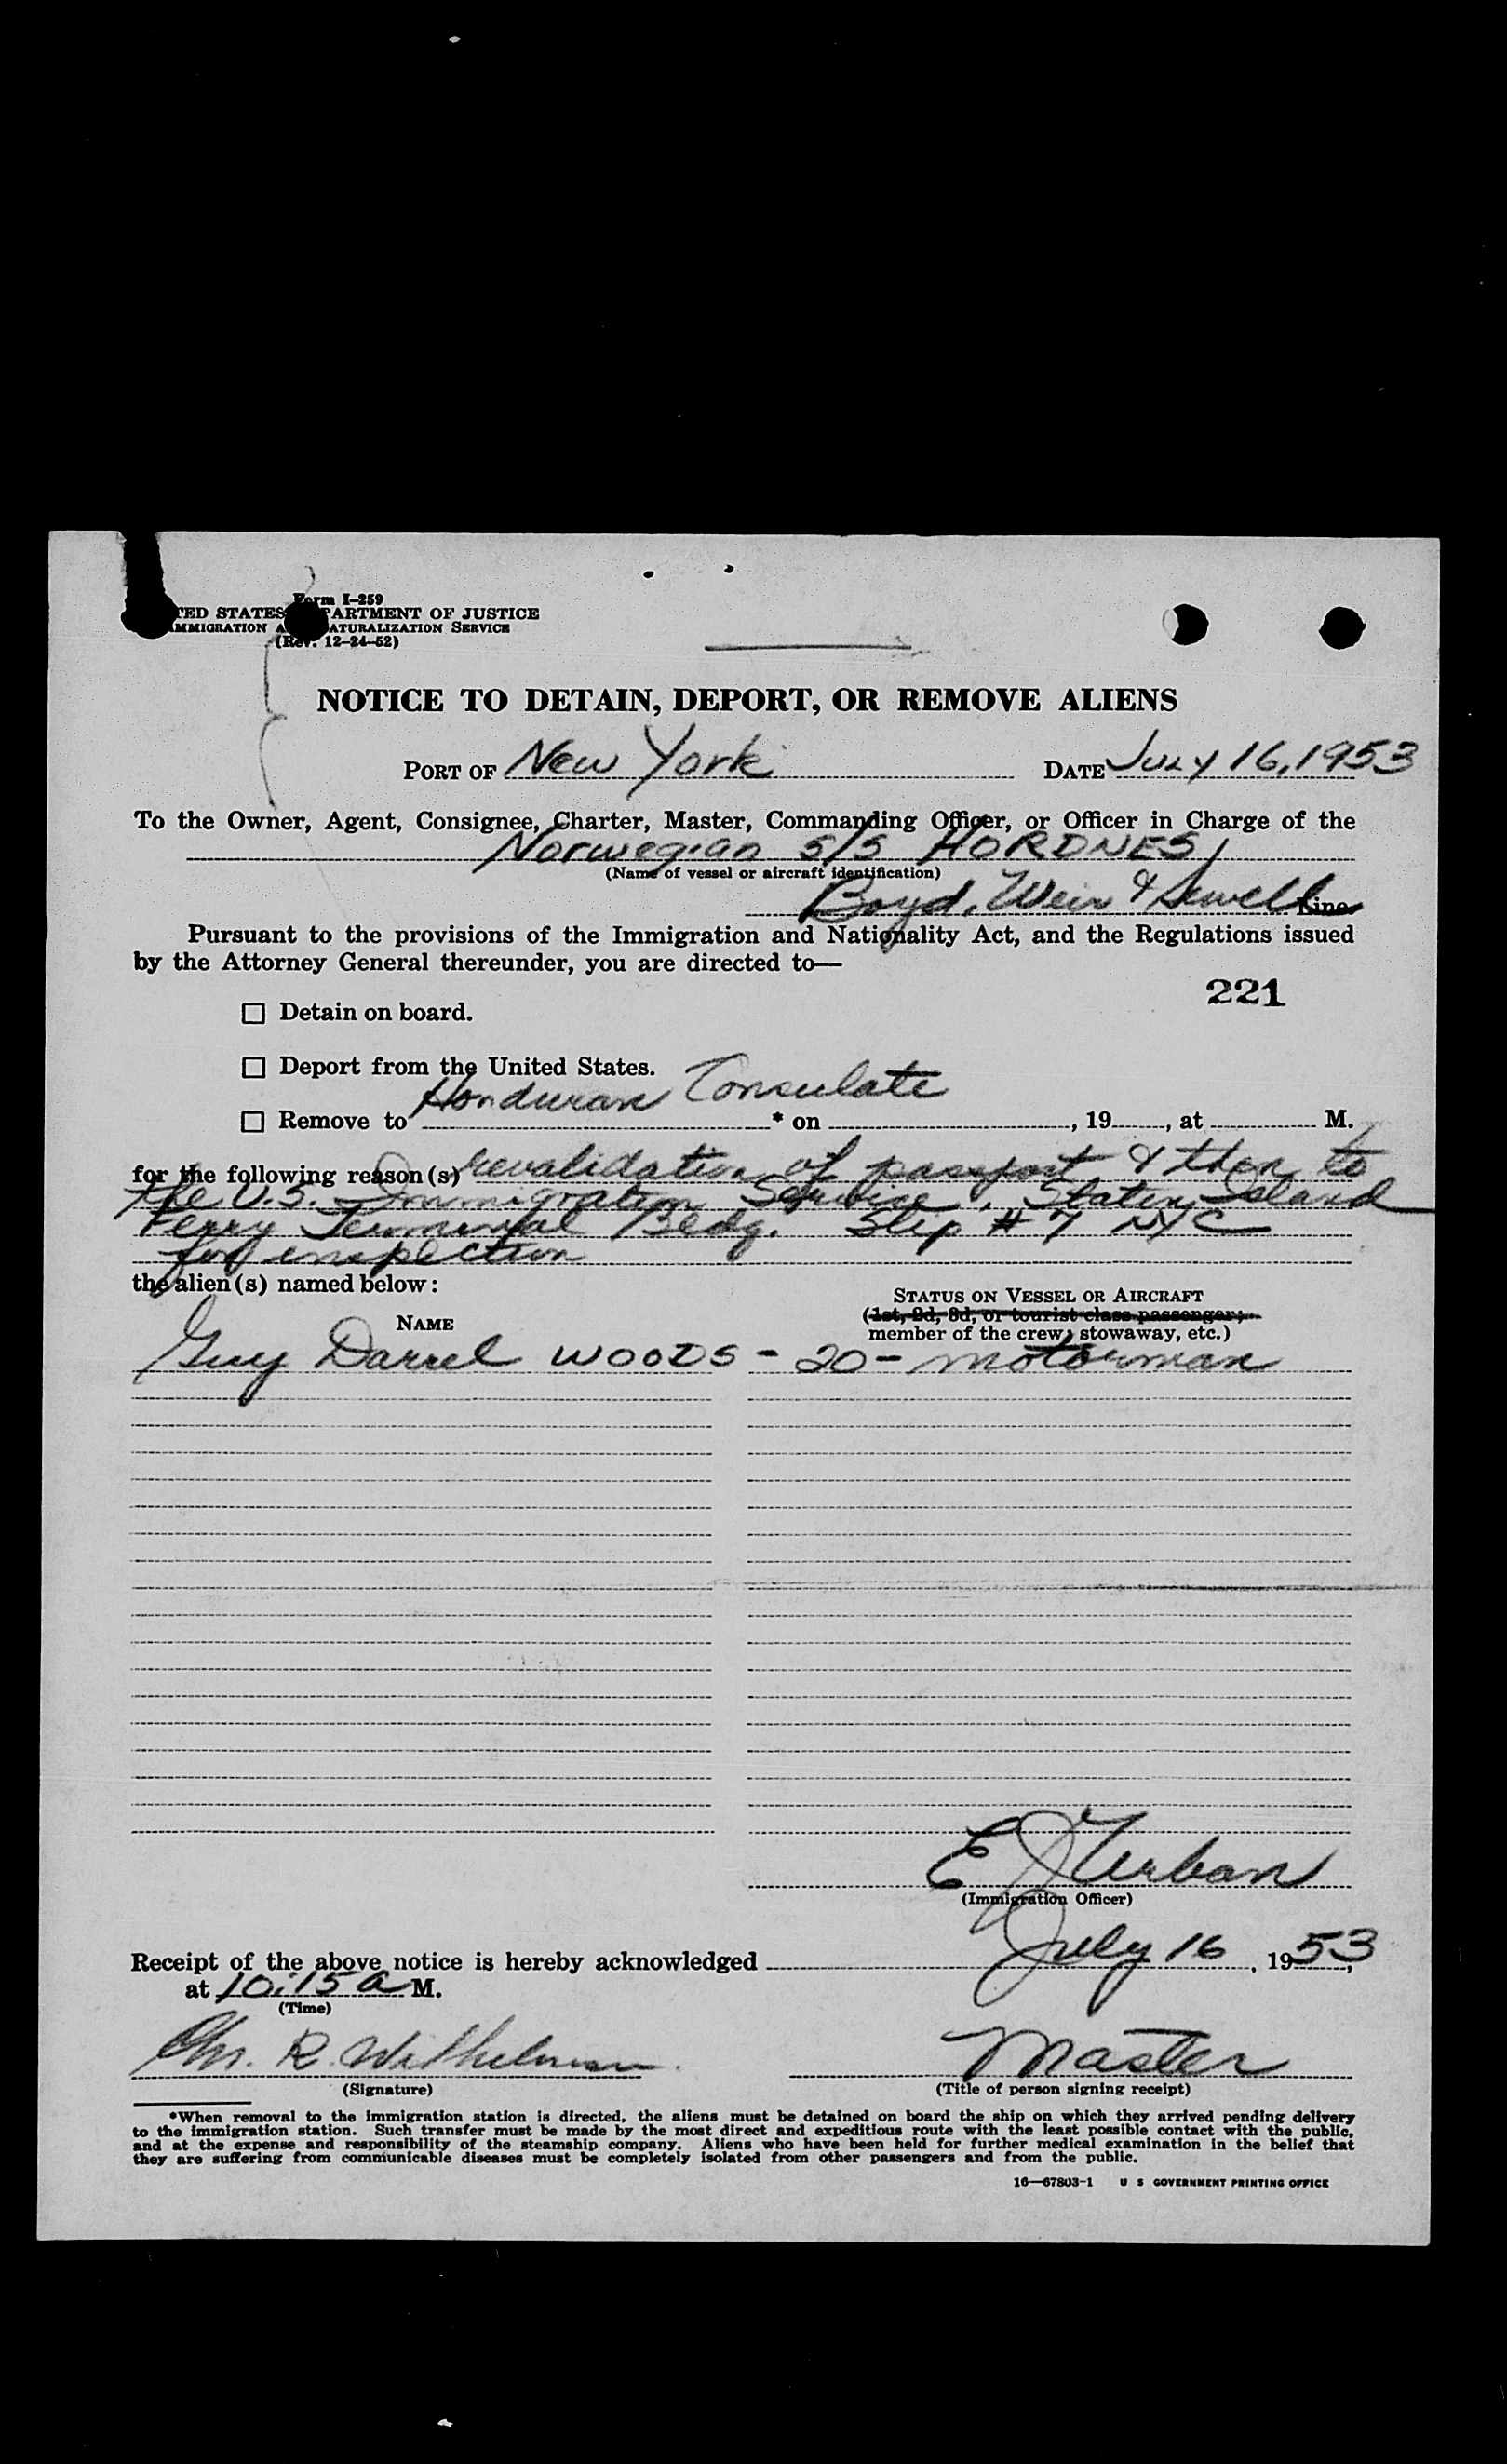 Form I-259
TED STATES PARTMENT OF JUSTICE
MMIGRATION A ATURALIZATION SERVICE
(Rev. 12-24-52)
NOTICE TO DETAIN, DEPORT, OR REMOVE ALIENS
PORT OF New York DATE July 16, 1953
To the Owner, Agent, Consignee, Charter, Master, Commanding Officer, or Officer in Charge of the
Norwegian S/S HORDNES
(Name of vessel or aircraft identification)
Boyd, Weir & Sewell Line
Pursuant to the provisions of the Immigration and Nationality Act, and the Regulations issued
by the Attorney General thereunder, you are directed to—
221
☐ Detain on board.
☐ Deport from the United States.
☐ Remove to Honduran Consulate * on , 19 , at M.
for the following reason(s) revalidation of passport & then to
the U.S. Immigration Service, Staten Island
Ferry Terminal Bldg. Slip # 7 NYC
for inspection
the alien(s) named below:
NAME
STATUS ON VESSEL OR AIRCRAFT
(1st, 2d, 3d, or tourist class passenger;
member of the crew, stowaway, etc.)
Guy Darrel WOODS - 20 - motorman
E J Urban
(Immigration Officer)
Receipt of the above notice is hereby acknowledged July 16, 1953,
at 10:15 a M.
(Time)
Chr. R. Wilhelmsen
Master
(Signature)
(Title of person signing receipt)
*When removal to the immigration station is directed, the aliens must be detained on board the ship on which they arrived pending delivery
to the immigration station. Such transfer must be made by the most direct and expeditious route with the least possible contact with the public,
and at the expense and responsibility of the steamship company. Aliens who have been held for further medical examination in the belief that
they are suffering from communicable diseases must be completely isolated from other passengers and from the public.
16—67803-1 U S GOVERNMENT PRINTING OFFICE